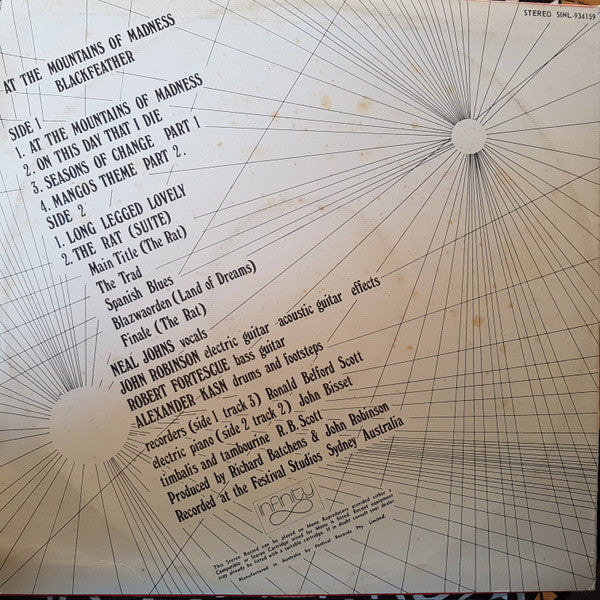 STEREO SINL-934159
AT THE MOUNTAINS OF MADNESS
BLACKFEATHER
SIDE 1
1. AT THE MOUNTAINS OF MADNESS
2. ON THIS DAY THAT I DIE
3. SEASONS OF CHANGE PART 1
4. MANGOS THEME PART 2.
SIDE 2
1. LONG LEGGED LOVELY
2. THE RAT (SUITE)
Main Title (The Rat)
The Trad
Spanish Blues
Blazwaorden (Land of Dreams)
Finale (The Rat)
NEAL JOHNS vocals
JOHN ROBINSON electric guitar acoustic guitar effects
ROBERT FORTESCUE bass guitar
ALEXANDER KASN drums and footsteps
recorders (side 1 track 3) Ronald Belford Scott
electric piano (side 2 track 2) John Bisset
timbalis and tambourine R.B. Scott
Produced by Richard Batchens & John Robinson
Recorded at the Festival Studios Sydney Australia
INFINITY
This Stereo Record can be played on Mono Reproducers provided either a
Compatible or Stereo Cartridge wired for Mono is fitted. Recent equipment
may already be fitted with a suitable cartridge. If in doubt consult your dealer
Manufactured in Australia by Festival Records Pty. Limited.